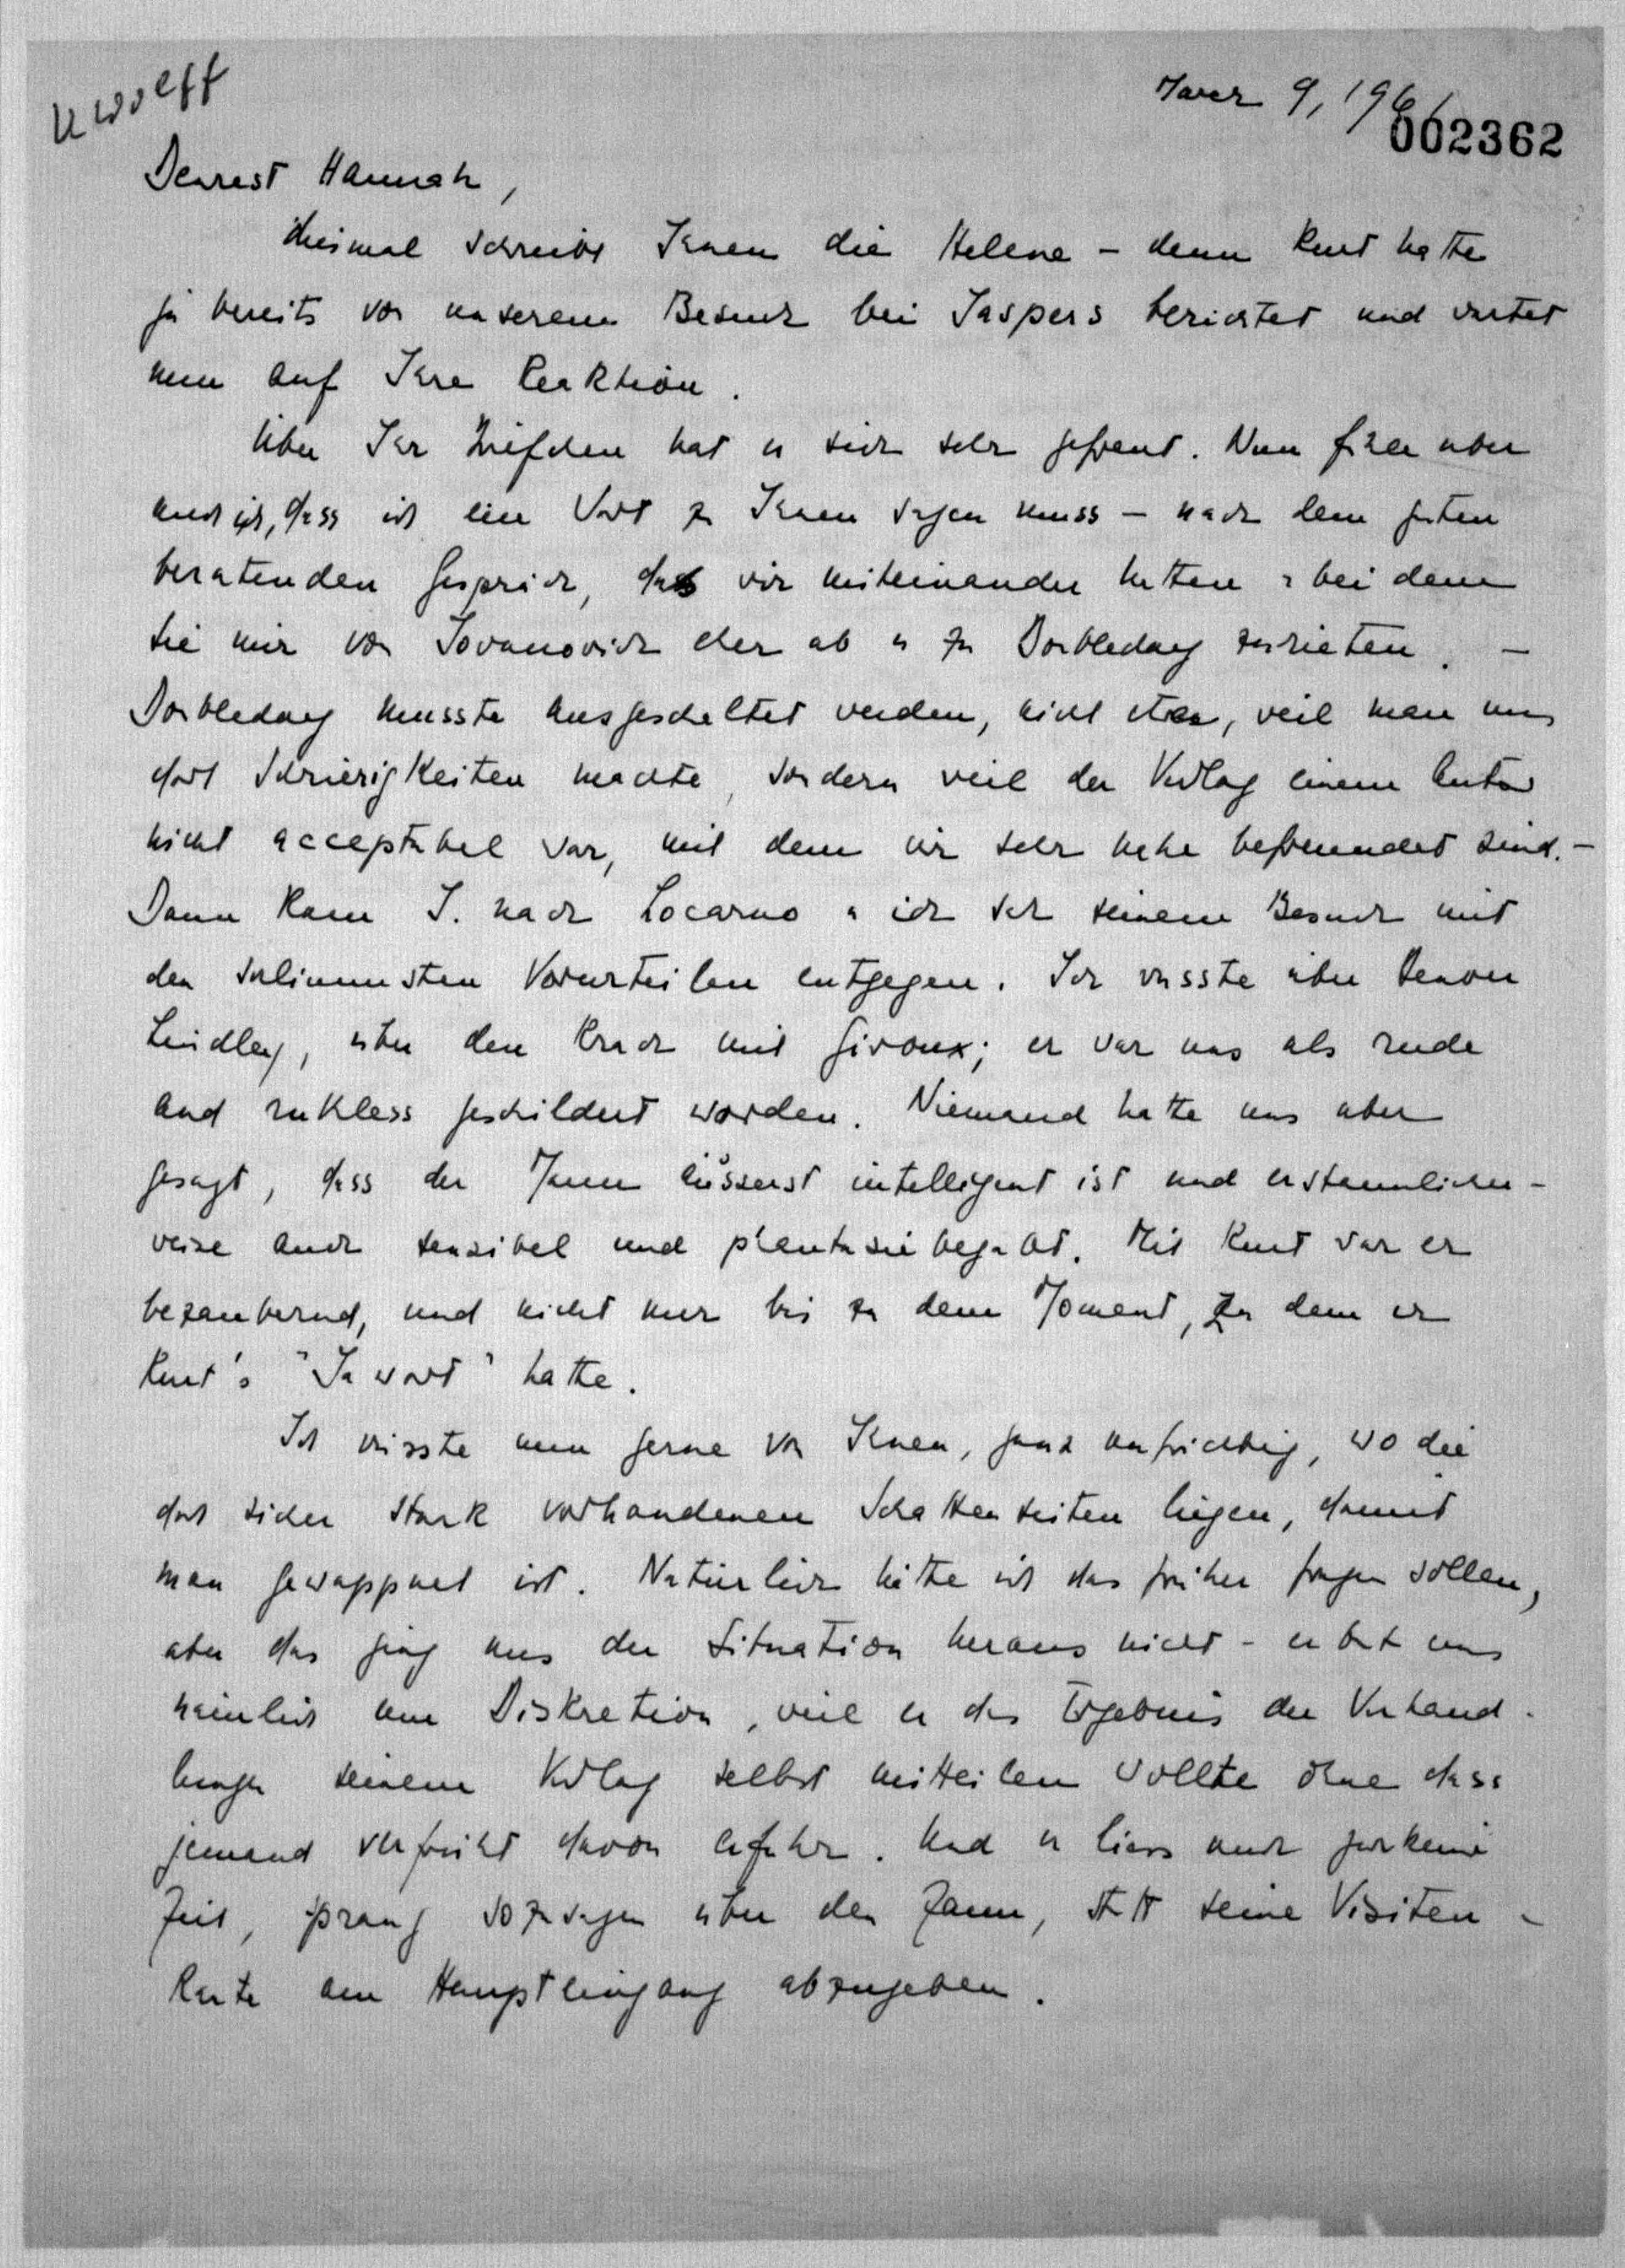 K Wolff
March 9, 1961
002362
Dearest Hannah,
diesmal schreibt Ihnen die Helene – denn Kurt hatte
ja bereits von unserem Besuch bei Jaspers berichtet und wartet
nun auf Ihre Reaktion.
Über Ihr Briefchen hat er sich sehr gefreut. Nun finde aber
auch ich, dass ich ein Wort zu Ihnen sagen muss – nach dem guten
beratenden Gespräch, das wir miteinander hatten u bei dem
Sie mir von Jovanovich eher ab u zu Doubleday zurieten. –
Doubleday musste ausgeschaltet werden, nicht etwa, weil man uns
dort Schwierigkeiten machte, sondern weil der Verlag einem Autor
nicht acceptabel war, mit dem wir sehr nahe befreundet sind. –
Dann kam J. nach Locarno u ich sah seinem Besuch mit
den schlimmsten Vorurteilen entgegen. Ich wusste über Denver
Lindley, über den Krach mit Giroux; er war uns als rude
and ruthless geschildert worden. Niemand hatte uns aber
gesagt, dass der Mann äusserst intelligent ist und erstaunlicher-
weise auch sensibel und phantasiebegabt. Mit Kurt war er
bezaubernd, und nicht nur bis zu dem Moment, zu dem er
Kurt's "Jawort" hatte.
Ich wüsste nun gerne von Ihnen, ganz aufrichtig, wo die
doch sicher stark vorhandenen Schattenseiten liegen, damit
man gewappnet ist. Natürlich hätte ich das früher fragen sollen,
aber das ging aus der Situation heraus nicht – er bat uns
nämlich um Diskretion, weil er das Ergebnis der Verhand-
lungen seinem Verlag selbst mitteilen wollte ohne dass
jemand verfrüht davon erfuhr. Und er liess auch gar keine
Zeit, sprang sozusagen über den Zaun, statt seine Visiten-
karte am Haupteingang abzugeben.